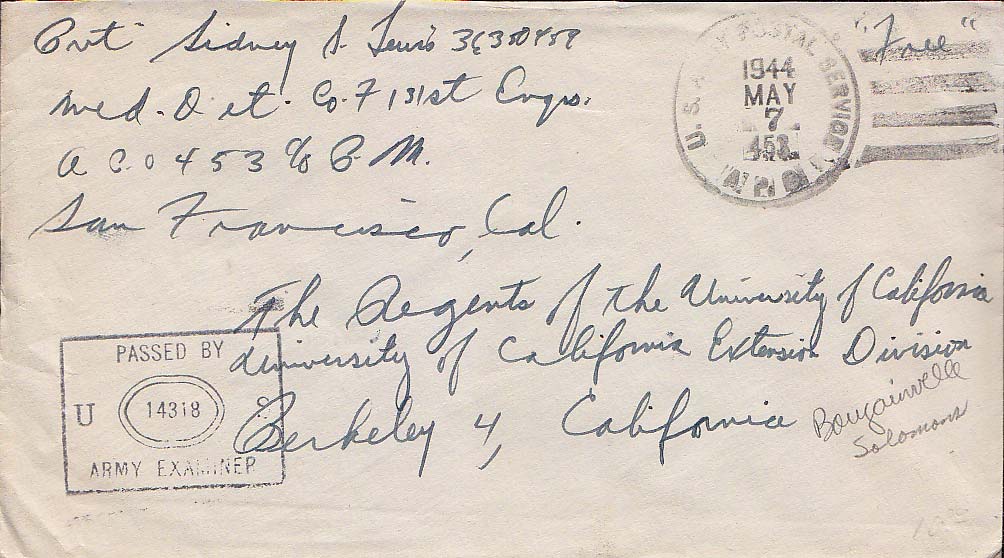 Pvt Sidney S. Lewis 36350459
Med. Det. Co. F 131st Engrs.
A P.O 453 c/o P. M.
San Francisco, Cal.
"Free"
U.S. ARMY POSTAL SERVICE
1944
MAY
7
453
The Regents of the University of California
University of California Extension Division
Berkeley 4, California
Bougainville
Solomons
PASSED BY
U 14318 S
ARMY EXAMINER